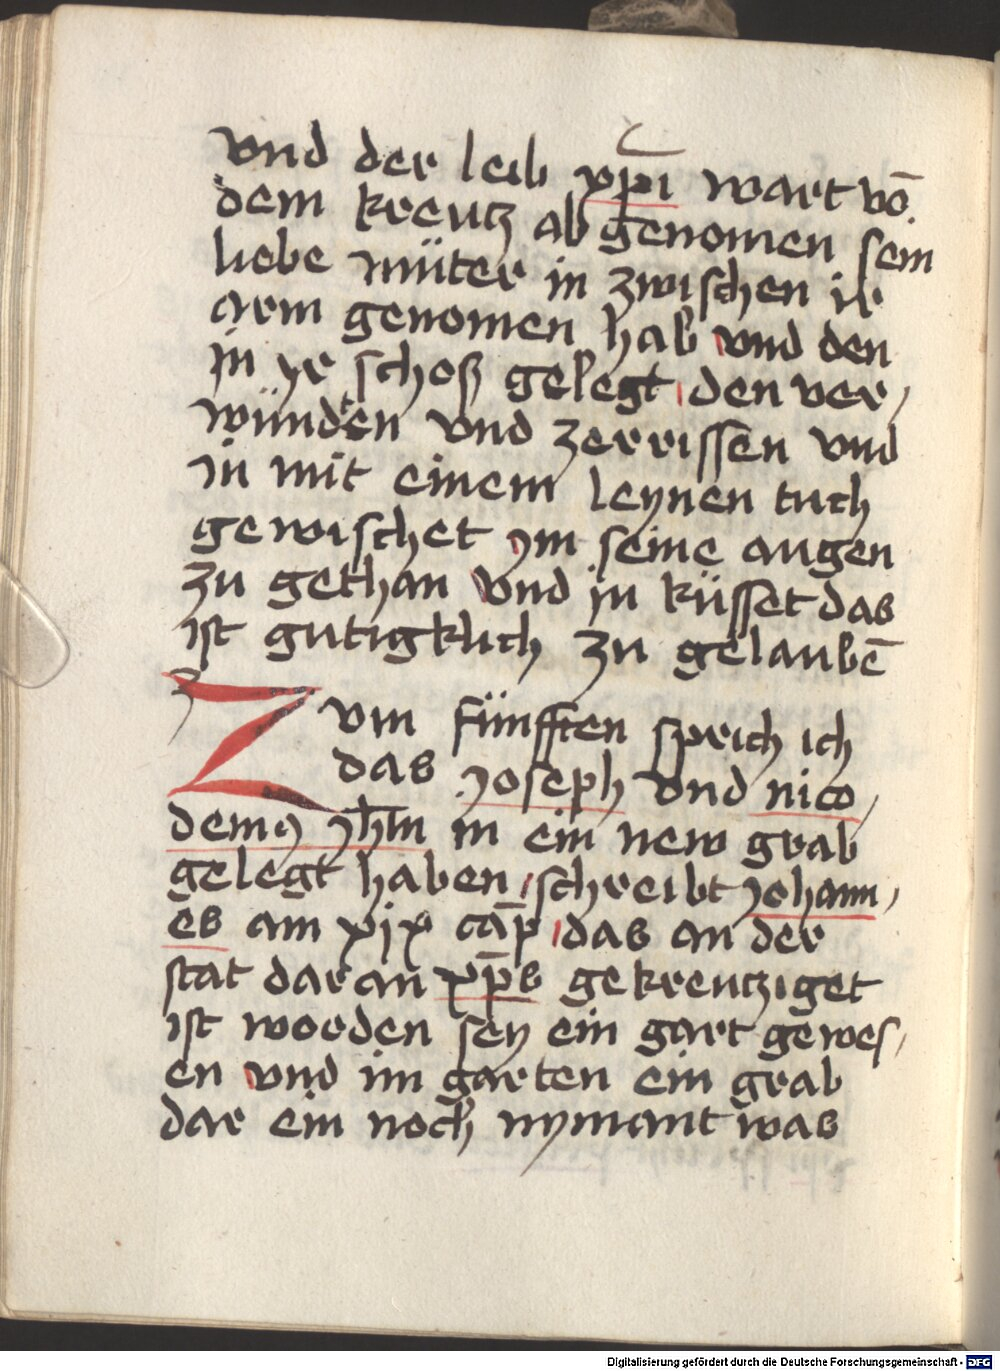 vnd der leib xp̄i wart vō
dem kreutz ab genomen sein
liebe müter in zwischen ir
arm genomen hab vnd den
in yr schoß gelegt den ver,
wündten vnd zerrissen vnd
in mit einem leynen tuch
gewischet ym seine augen
zu gethan vnd in küsset das
ist gutigklich zu gelaubē
Zvm fünfften sprich ich
das yoseph vnd nico,
demꝯ yh̄m in ein new grab
gelegt haben schreibt yohann,
es am xix cap̄ das an der
stat daran xp̄s gekreutziget
ist worden sey ein gart gewes,
en vnd im garten ein grab
dar ein noch nymant was
Digitalisierung gefördert durch die Deutsche Forschungsgemeinschaft - DFG